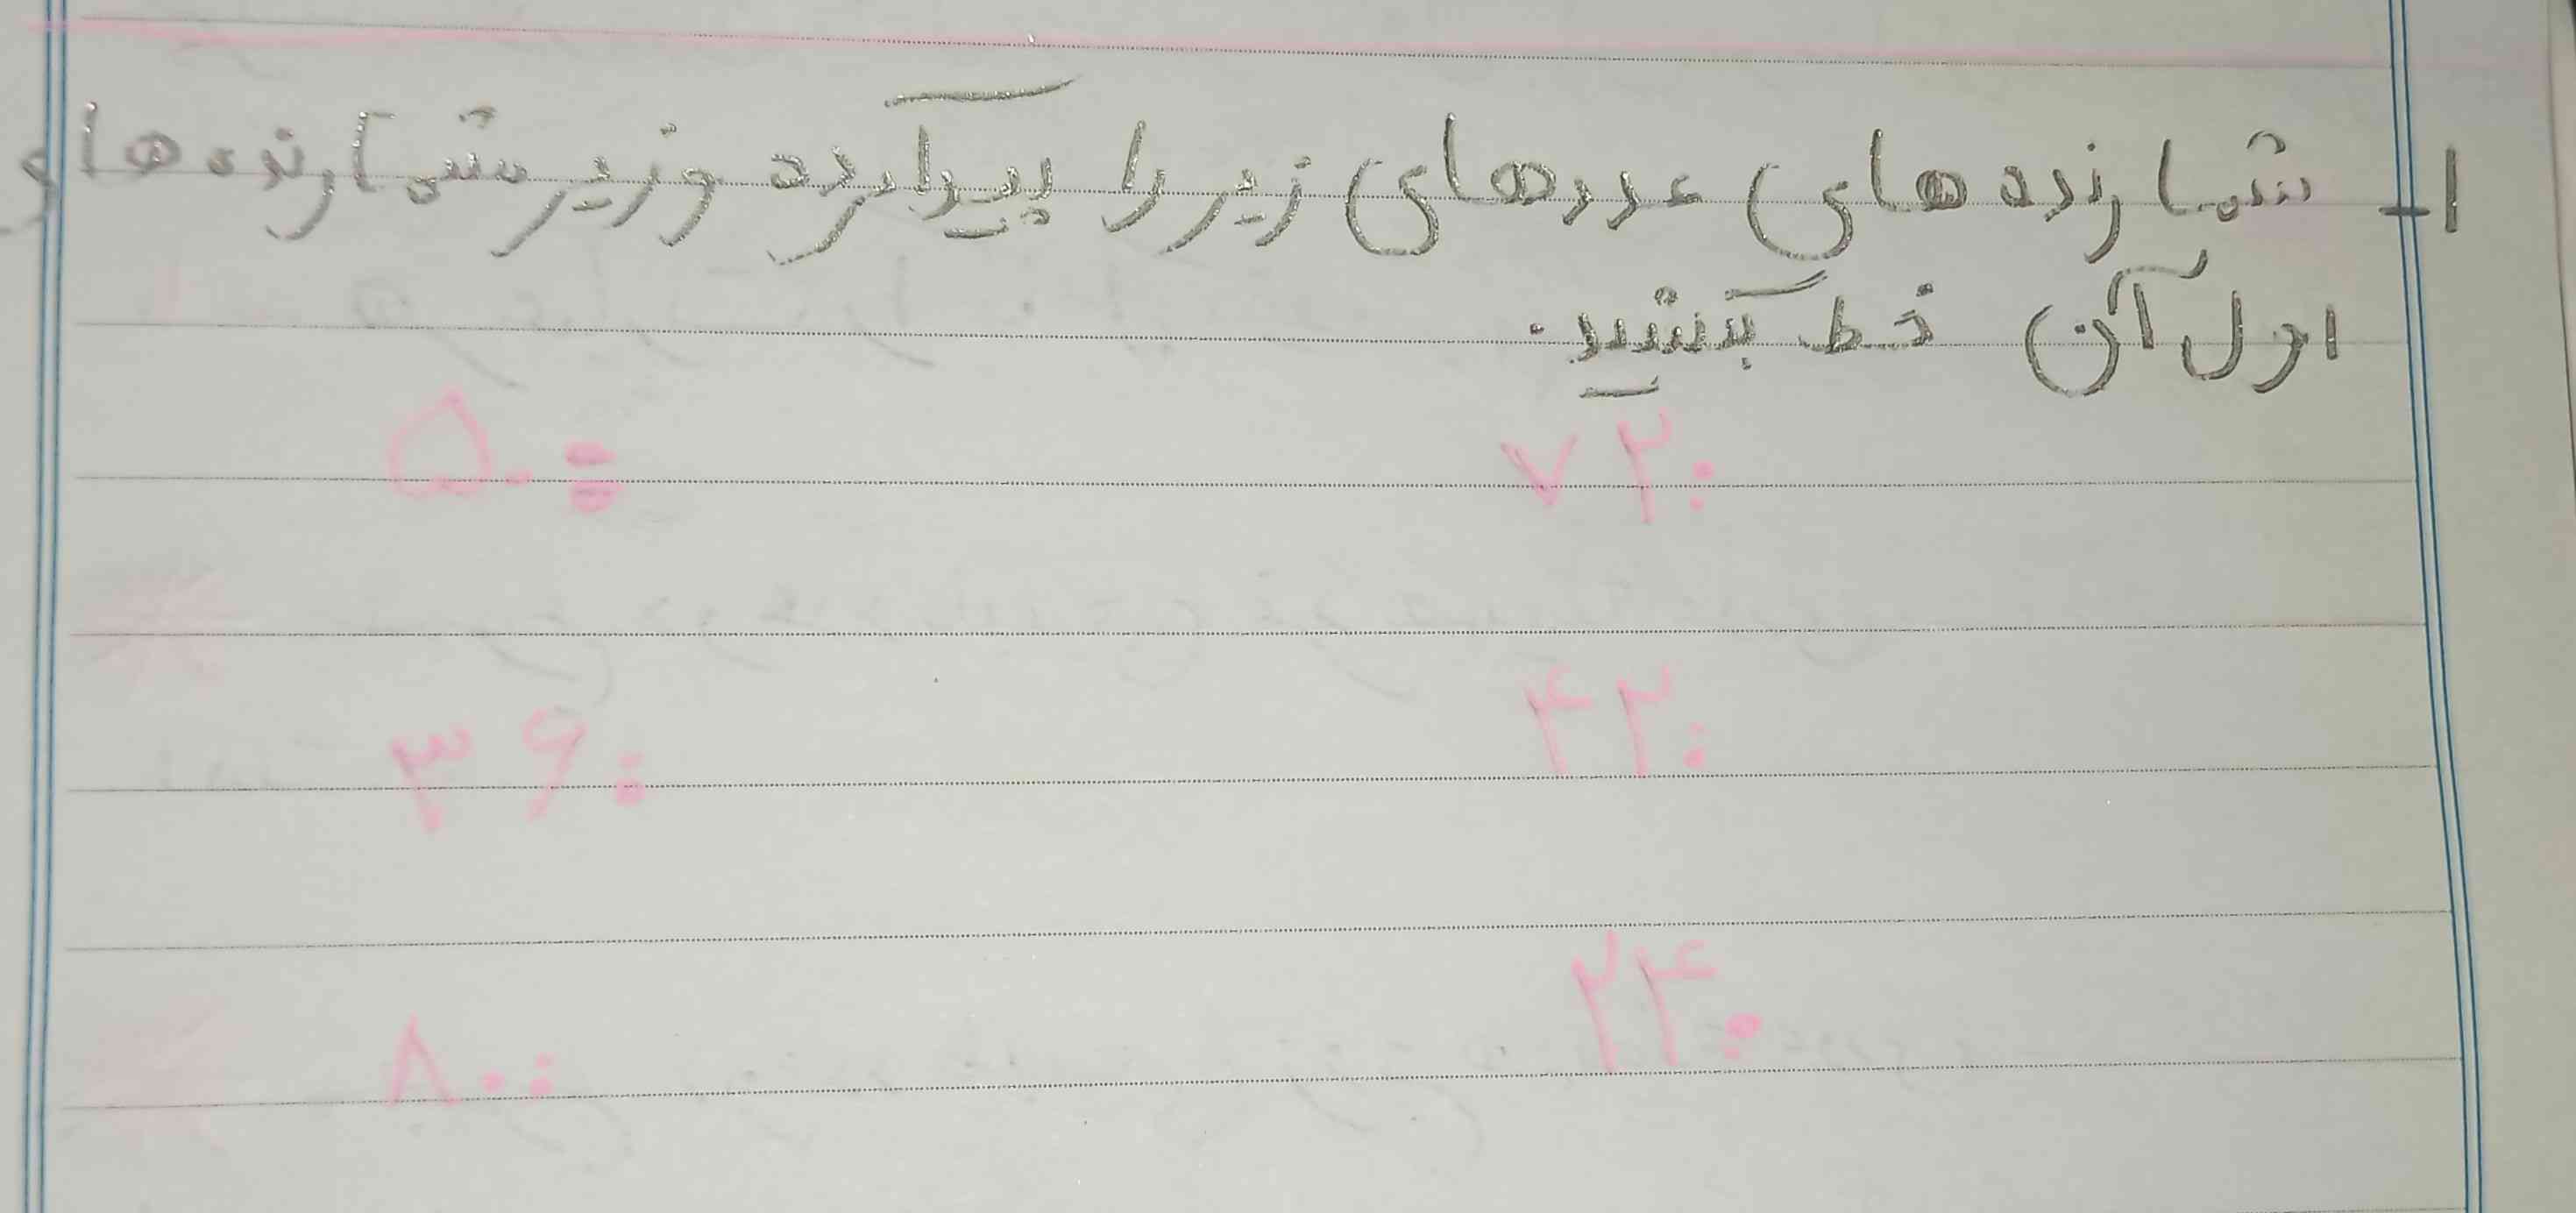 ۱- شمارنده های عددهای زیر را پیدا کرده و زیر شمارنده های
اول آن خط بکشید.
۷۲: ۵۰:
۴۲: ۳۶:
۲۴: ۸۰: